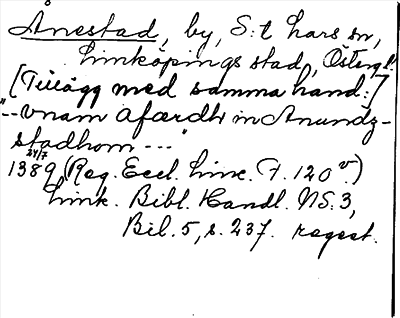 Ånestad, by, S:t Lars sn,
Linköpings stad, Östergl.
[Tillägg med samma hand:]
"--vnam afærdh in Anundz-
stadhom ---"
24/7
1389 (Reg. Eccl. Linc. F. 120 v.)
Link. Bibl. Handl. NS:3,
Bil. 5, s. 237. regest.